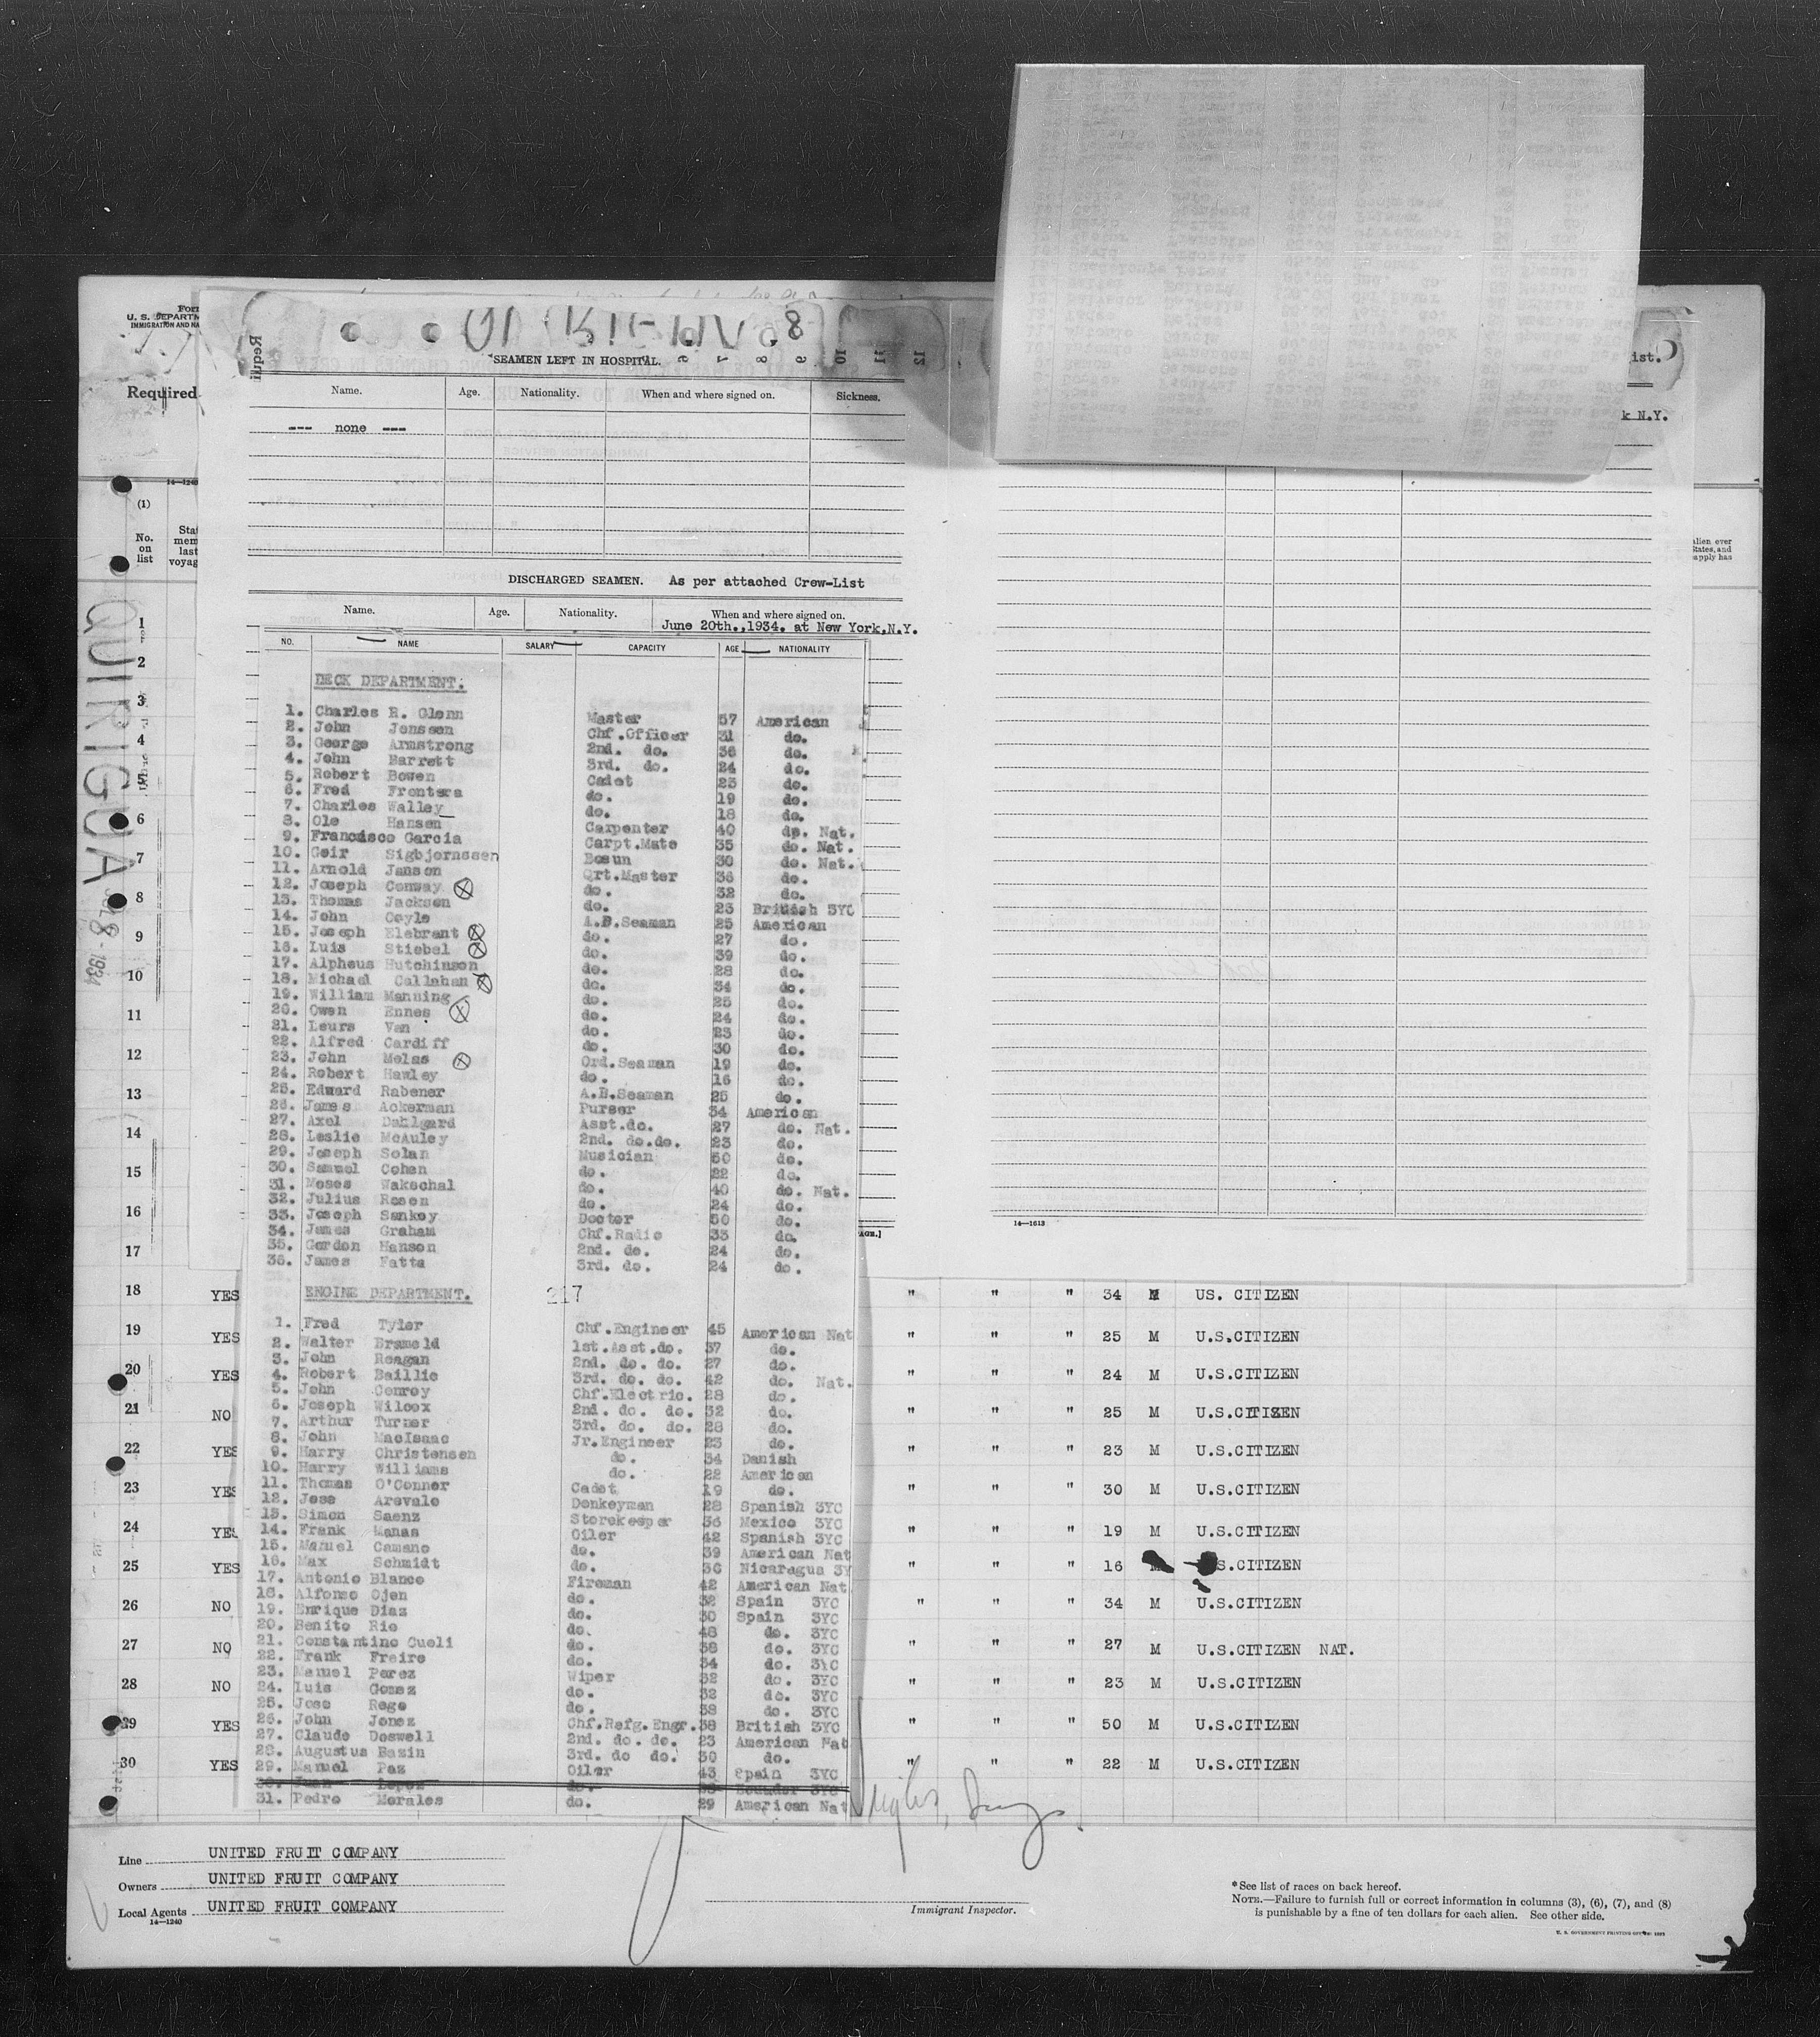 Form
U. S. DEPARTM
IMMIGRATION AND NA
Required
14—1240
(1)
No. on list
Stat mem last voyag
QUIRIGUA
8 1934
8
SEAMEN LEFT IN HOSPITAL.
Name. Age. Nationality. When and where signed on. Sickness.
--- none ---
DISCHARGED SEAMEN. As per attached Crew-List
Name. Age. Nationality. When and where signed on.
June 20th.,1934. at New York,N.Y.
NO. NAME SALARY CAPACITY AGE NATIONALITY
DECK DEPARTMENT.
1. Charles R. Glenn Master 57 American
2. John Jonsson Chf.Officer 31 do.
3. George Armstrong 2nd. do. 36 do.
4. John Barrett 3rd. do. 24 do.
5. Robert Bowen Cadet 23 do.
6. Fred Frontera do. 19 do.
7. Charles Walley do. 18 do.
8. Ole Hansen Carpenter 40 do. Nat.
9. Francisco Garcia Carpt.Mate 35 do. Nat.
10. Geir Sigbjornssen Bosun 30 do. Nat.
11. Arnold Janson Qrt.Master 36 do.
12. Joseph Conway do. 32 do.
13. Thomas Jackson do. 23 British 3YC
14. John Coyle A.B.Seaman 25 American
15. Joseph Elebrant do. 27 do.
16. Luis Stiebel do. 39 do.
17. Alpheus Hutchinson do. 28 do.
18. Michael Callahan do. 34 do.
19. William Manning do. 25 do.
20. Owen Ennes do. 24 do.
21. Leurs Van do. 23 do.
22. Alfred Cardiff do. 30 do.
23. John Melas Ord.Seaman 19 do.
24. Robert Hawley do. 16 do.
25. Edward Rabener A.B.Seaman 25 do.
26. James Ackerman Purser 34 American
27. Axel Dahlgard Asst.do. 27 do. Nat.
28. Leslie McAuley 2nd. do.do. 23 do.
29. Joseph Solan Musician 50 do.
30. Samuel Cohen do. 22 do.
31. Moses Wakschal do. 40 do. Nat.
32. Julius Rosen do. 24 do.
33. Joseph Sankey Doctor 50 do.
34. James Graham Chf.Radio 33 do.
35. Gordon Hanson 2nd. do. 24 do.
36. James Fatta 3rd. do. 24 do.
ENGINE DEPARTMENT. 217
1. Fred Tyler Chf.Engineer 45 American Nat
2. Walter Brameld 1st.Asst.do. 37 do.
3. John Reagan 2nd. do. do. 27 do.
4. Robert Baillie 3rd. do. do. 42 do. Nat.
5. John Conroy Chf.Electric. 28 do.
6. Joseph Wilcox 2nd. do. do. 32 do.
7. Arthur Turner 3rd. do. do. 28 do.
8. John MacIsaac Jr.Engineer 23 do.
9. Harry Christensen do. 34 Danish
10. Harry Williams do. 22 American
11. Thomas O'Conner Cadet 19 do.
12. Jose Arevalo Donkeyman 28 Spanish 3YC
13. Simon Saenz Storekeeper 36 Mexico 3YC
14. Frank Manas Oiler 42 Spanish 3YC
15. Manuel Camano do. 39 American Nat
16. Max Schmidt do. 36 Nicaragua 3Y
17. Antonio Blanco Fireman 42 American Nat
18. Alfonso Ojen do. 32 Spain 3YC
19. Enrique Diaz do. 30 Spain 3YC
20. Benito Rio do. 48 do. 3YC
21. Constantino Cueli do. 38 do. 3YC
22. Frank Freire do. 34 do. 3YC
23. Manuel Perez Wiper 32 do. 3YC
24. Luis Gomez do. 32 do. 3YC
25. Jose Rego do. 38 do. 3YC
26. John Jones Chf.Refg.Engr. 38 British 3YC
27. Claude Doswell 2nd. do. do. 23 American Nat
28. Augustus Bazin 3rd. do do. 30 do.
29. Manuel Paz Oiler 43 Spain 3YC
30. Juan Lopez do. Ecuador 3YC
31. Pedro Morales do. 29 American Nat
ist.
k N.Y.
14—1613
AGE.]
1
2
3
4
5
6
7
8
9
10
11
12
13
14
15
16
17
18 YES " " " 34 M US. CITIZEN
19 YES " " " 25 M U.S.CITIZEN
20 YES " " " 24 M U.S.CITIZEN
21 NO " " " 25 M U.S.CITIZEN
22 YES " " " 23 M U.S.CITIZEN
23 YES " " " 30 M U.S.CITIZEN
24 YES " " " 19 M U.S.CITIZEN
25 YES " " " 16 M S.CITIZEN
26 NO " " " 34 M U.S.CITIZEN
27 NO " " " 27 M U.S.CITIZEN NAT.
28 NO " " " 23 M U.S.CITIZEN
29 YES " " " 50 M U.S.CITIZEN
30 YES " " " 22 M U.S.CITIZEN
Line UNITED FRUIT COMPANY
Owners UNITED FRUIT COMPANY
Local Agents UNITED FRUIT COMPANY
14—1240
Immigrant Inspector.
*See list of races on back hereof.
NOTE.—Failure to furnish full or correct information in columns (3), (6), (7), and (8)
is punishable by a fine of ten dollars for each alien. See other side.
U. S. GOVERNMENT PRINTING OFFICE